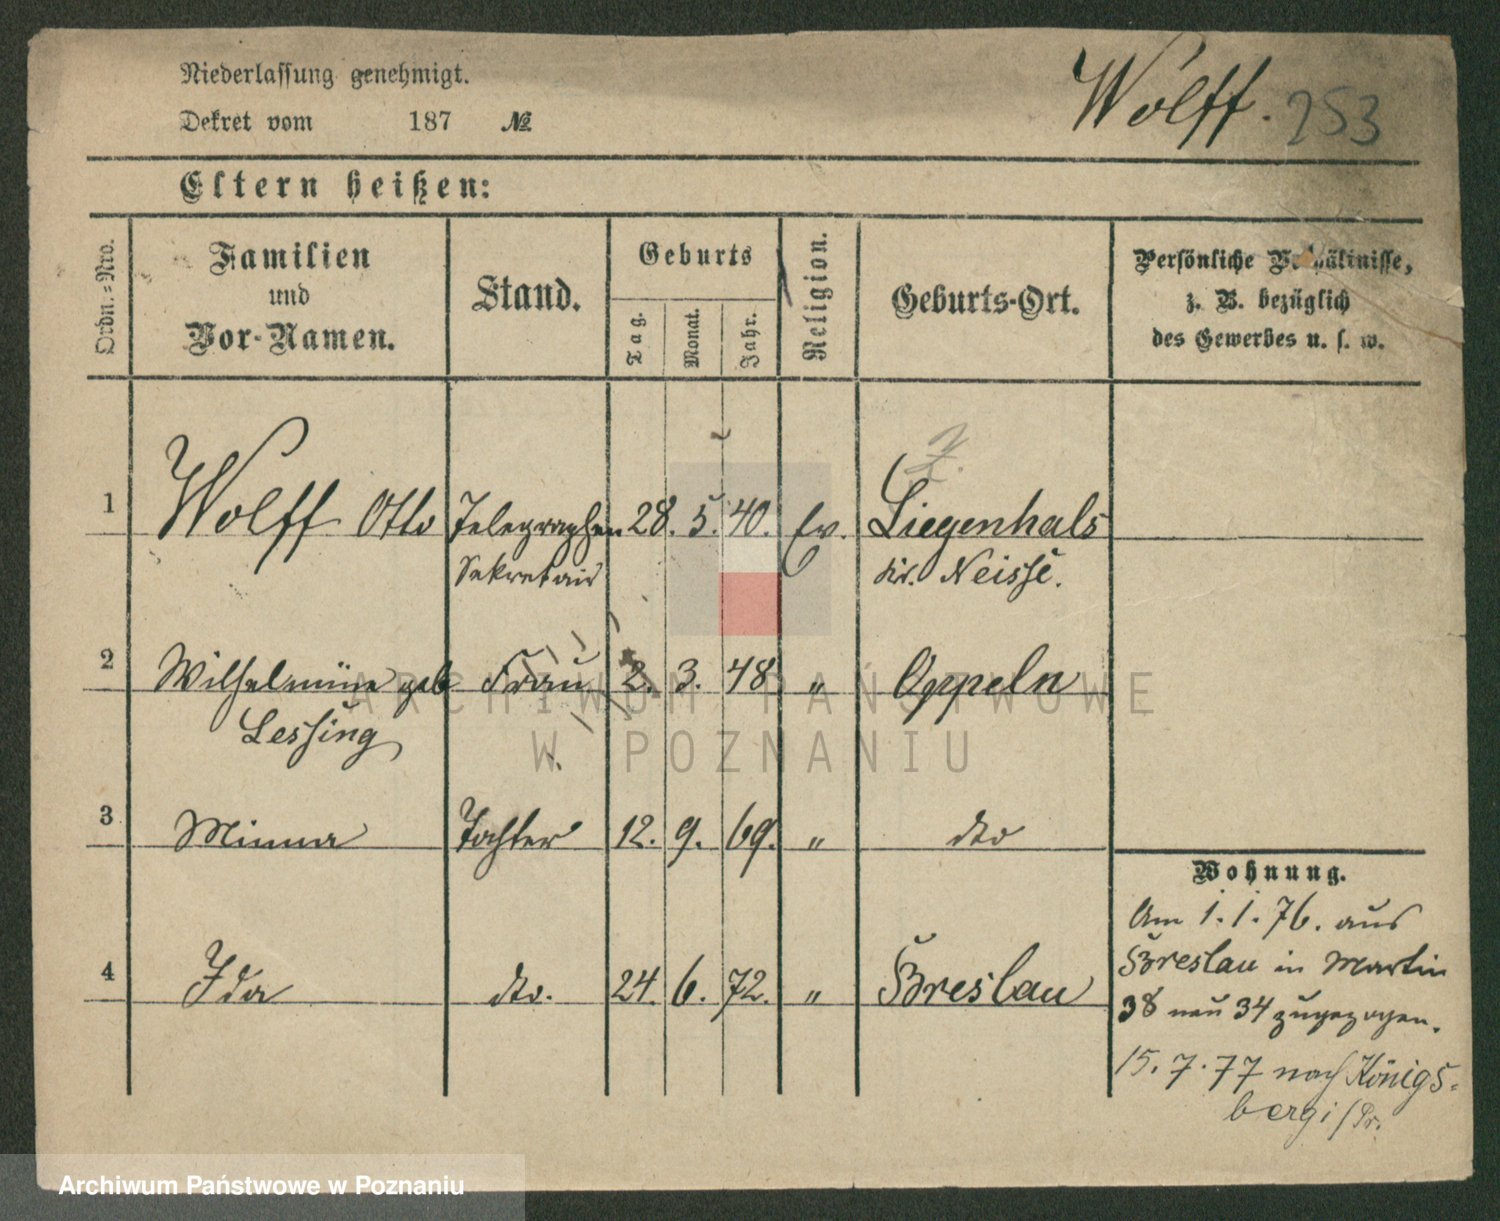 Niederlassung genehmigt.
Wolff. 253
Dekret vom 187 №
Eltern heißen:
Ordn.=Nro.
Familien
und
Vor-Namen.
Stand.
Geburts
Tag.
Monat.
Jahr.
Religion.
Geburts-Ort.
Persönliche Verhältnisse,
z. B. bezüglich
des Gewerbes u. s. w.
1 Wolff Otto Telegraphen 28. 5. 40. Ev. Ziegenhals
Sekretair Kr. Neisse.
2 Wilhelmine geb Frau 2. 3. 48 " Oppeln
Lessing
3 Minna Tochter 12. 9. 69. " dto
4 Ida dto. 24. 6. 72. " Breslau
Wohnung.
Am 1. 1. 76. aus
Breslau in Martin
38 neu 34 zugezogen.
15. 7. 77 nach Königs-
berg i/Pr.
ARCHIWUM PAŃSTWOWE
W POZNANIU
Archiwum Państwowe w Poznaniu